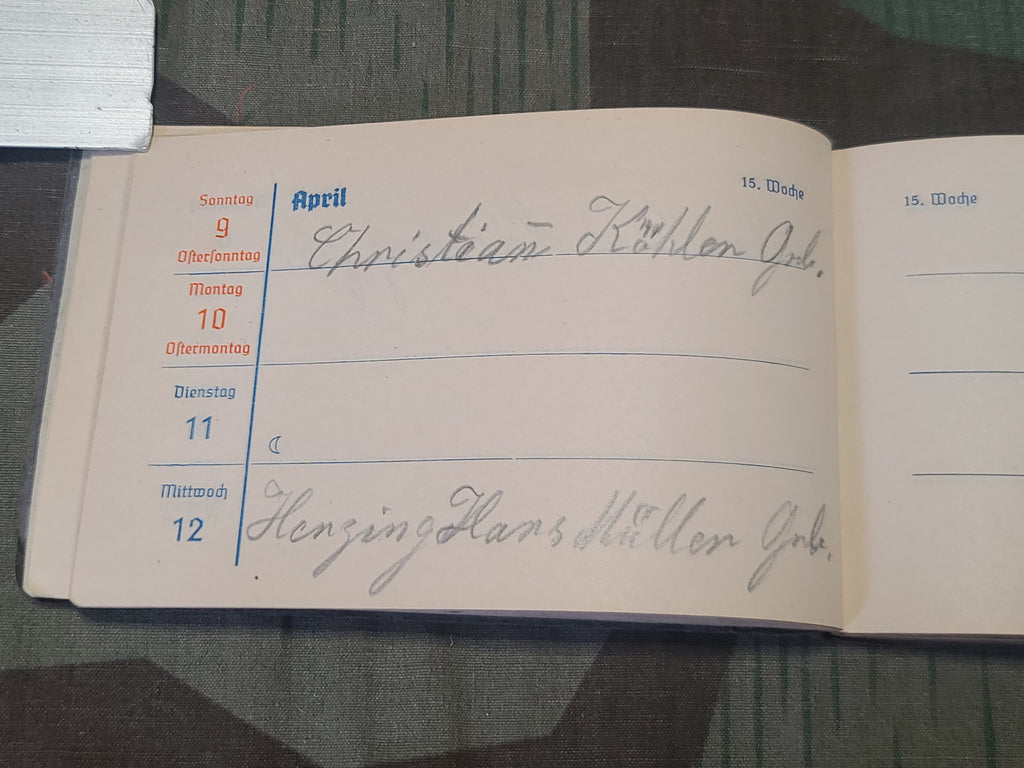 Sonntag
9
Ostersonntag
April
15. Woche
Christian Köhler Grb.
Montag
10
Ostermontag
Dienstag
11
Mittwoch
12
Herzing Hans Müller Grb.
15. Woche